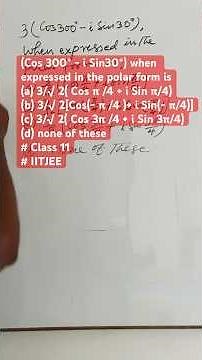 3(Cos300° - i Sin30°),
when expressed in the
(Cos 300°− i Sin30°) when
expressed in the polar form is
(a) 3/√ 2( Cos π /4 + i Sin π/4)
(b) 3/√ 2[Cos(- π/4 )+ i Sin(- π/4)]
(c) 3/√ 2( Cos 3π /4 + i Sin 3π/4)
(d) none of these
# Class 11
# IITJEE
of These